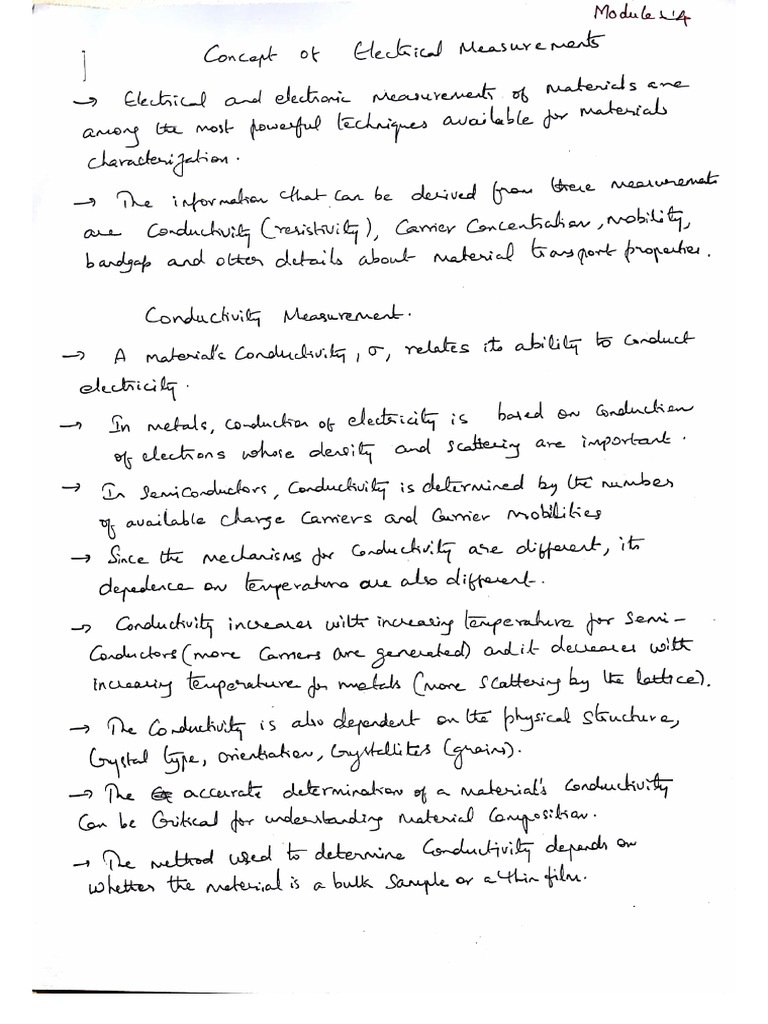 Module 4
Concept of Electrical Measurements
→ Electrical and electronic measurements of materials are
among the most powerful techniques available for materials
characterization.
→ The information that can be derived from these measurements
are Conductivity (resistivity), Carrier Concentration, mobility,
bandgap and other details about material transport properties.
Conductivity Measurement.
→ A material's Conductivity, σ, relates its ability to conduct
electricity.
→ In metals, conduction of electricity is based on conduction
of electrons whose density and scattering are important.
→ In Semiconductors, Conductivity is determined by the number
of available charge carriers and carrier mobilities
→ Since the mechanisms for conductivity are different, its
depedence on temperature are also different.
→ Conductivity increases with increasing temperature for Semi-
Conductors (more carriers are generated) and it decreases with
increasing temperature for metals (more scattering by the lattice).
→ The Conductivity is also dependent on the physical structure,
Crystal type, orientation, Crystallites (grains).
→ The accurate determination of a material's conductivity
Can be Critical for understanding material Composition.
→ The method used to determine Conductivity depends on
whether the material is a bulk Sample or a thin film.